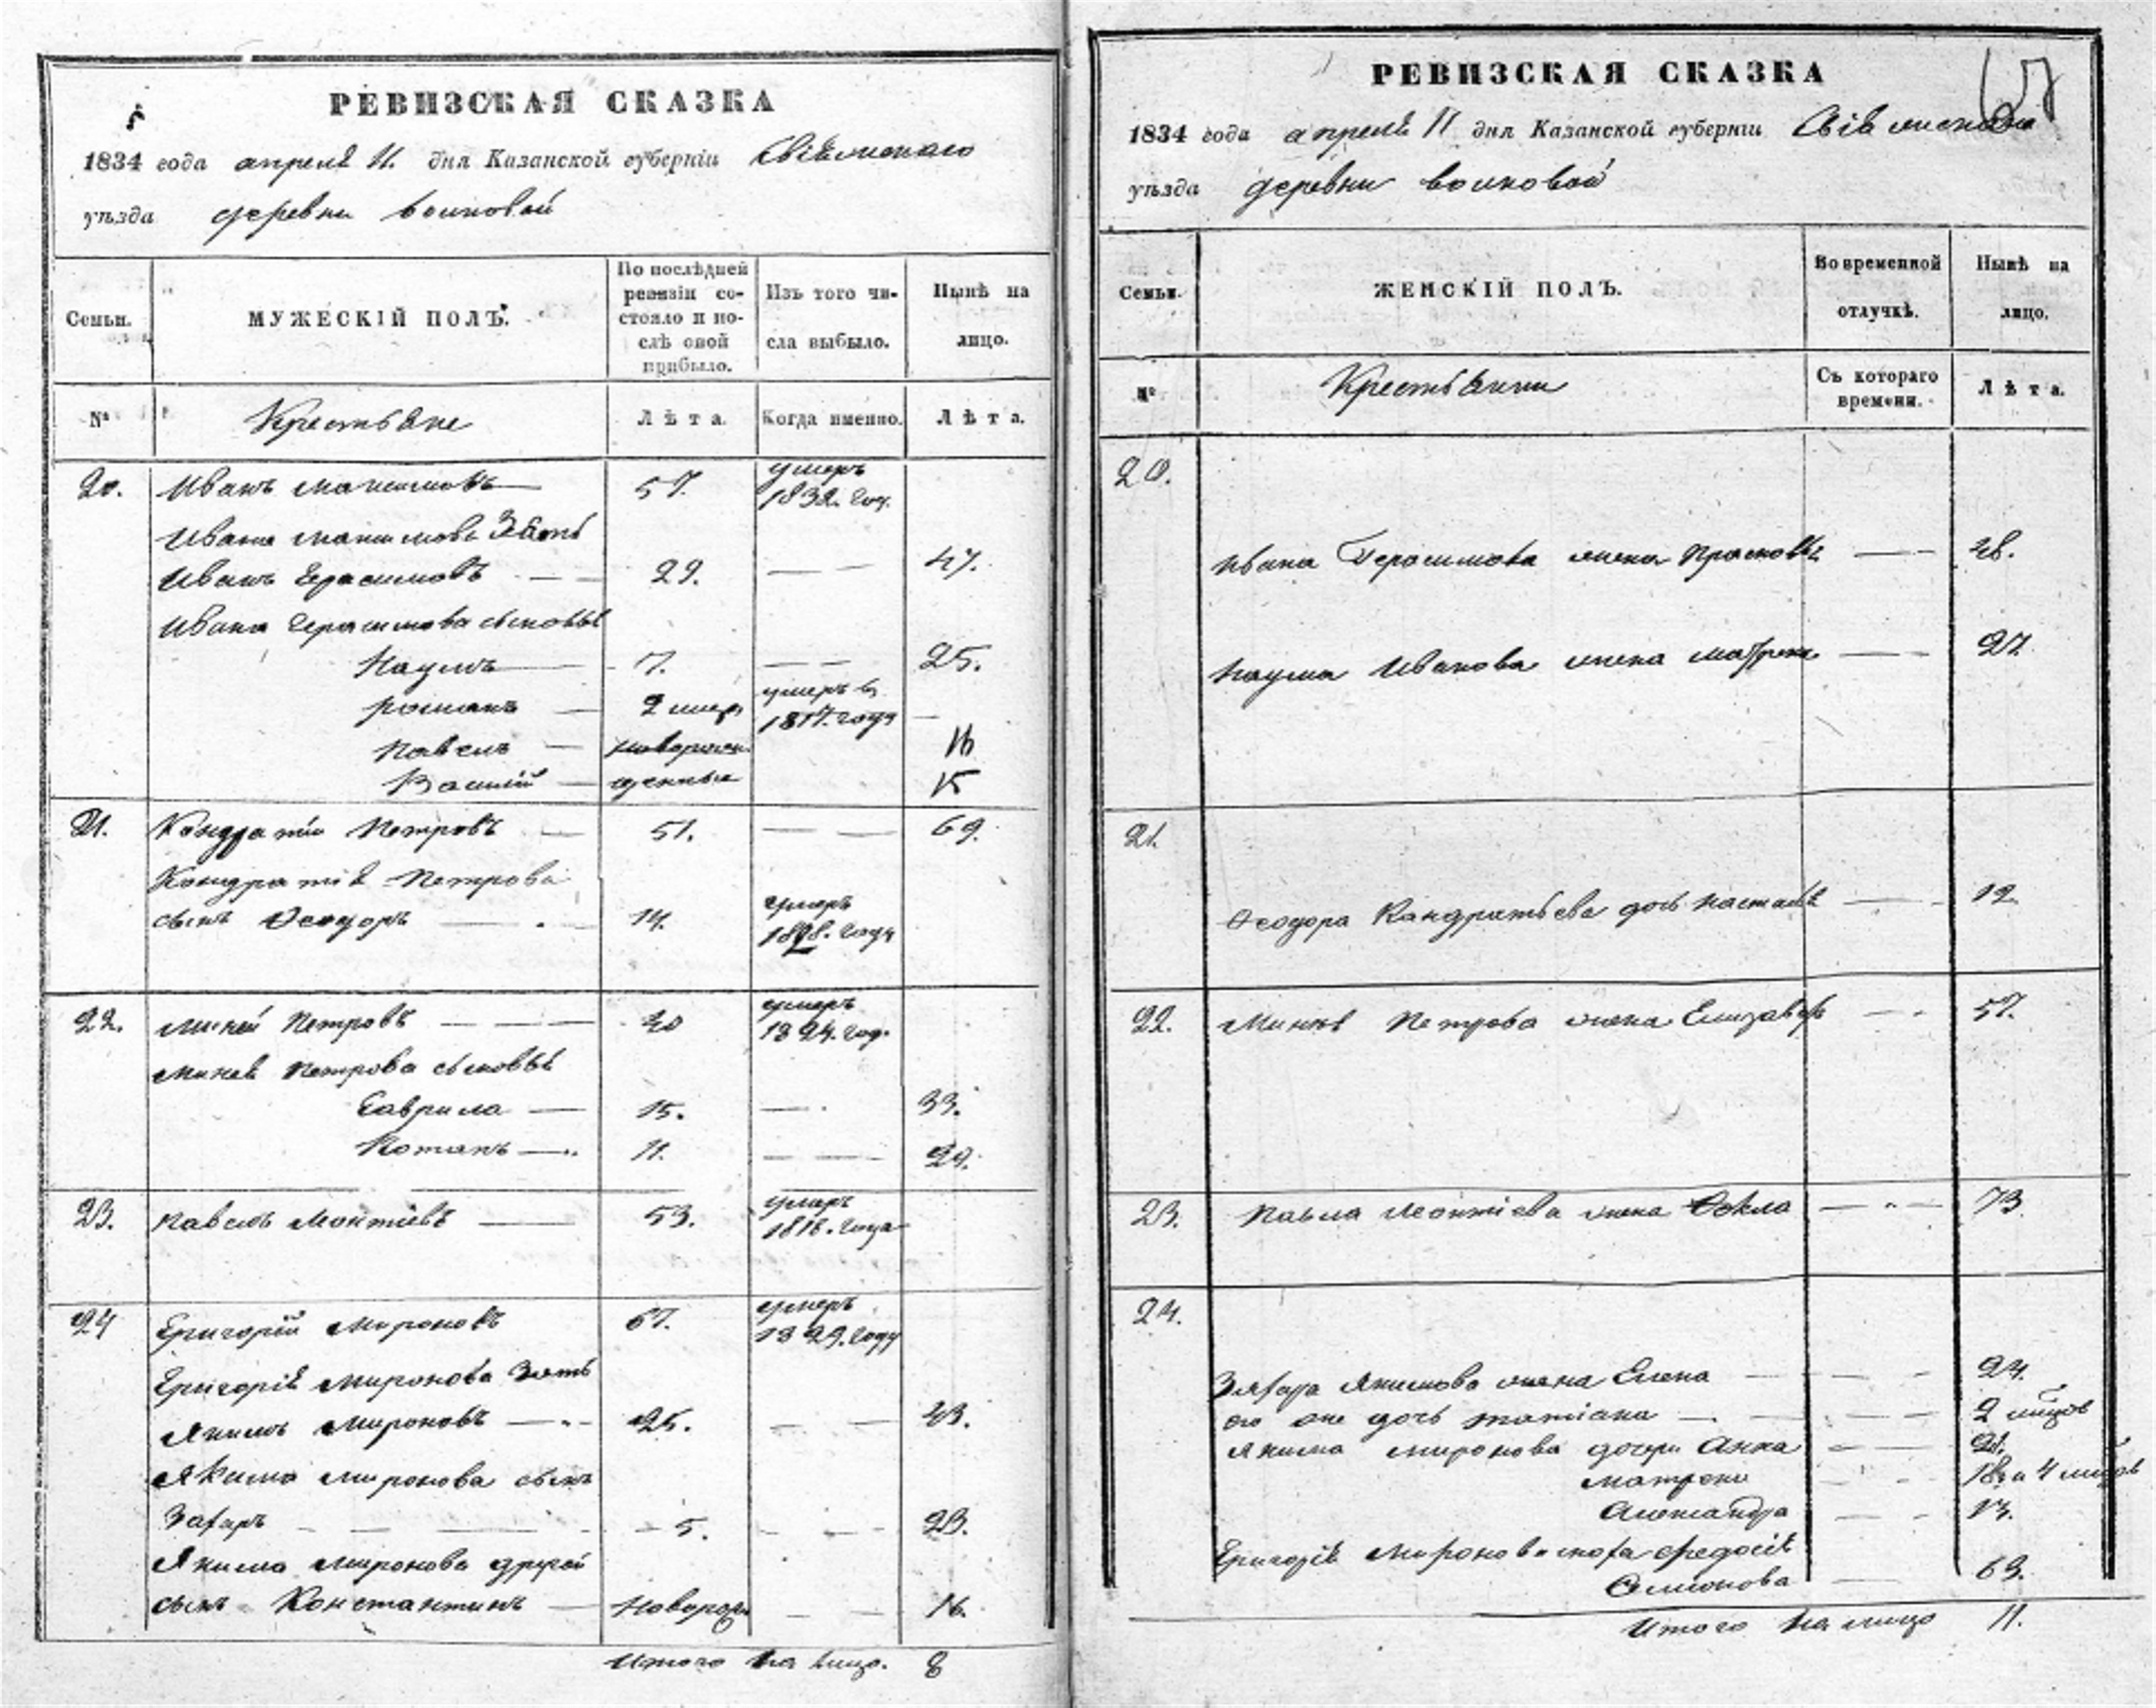 РЕВИЗСКАЯ СКАЗКА
1834 года апреля 11. дня Казанской губернiи Свiяжскаго
уѣзда деревни
Семьи.
МУЖЕСКІЙ ПОЛЪ.
По послѣдней ревизіи состояло и послѣ оной прибыло.
Изъ того числа выбыло.
Нынѣ на лицо.
№
Крестьяне
Лѣта.
Когда именно.
Лѣта.
20. Иванъ Максимовъ 57. умеръ 1832. год.
Ивана Максимова Зять
Иванъ Герасимовъ 29. 47.
Ивана Герасимова сыновья
Наумъ 7. 25.
Романъ 2 умеръ 1817. года
Павелъ новорож 16
Василий денные 15
21. Кондратiй Петровъ 51. 69.
Кондратiя Петрова
сынъ Ѳеодоръ 14. умеръ 1828. года
22. Миней Петровъ 40 умеръ 1824. год.
Минея Петрова сыновья
Гаврила 15. 33.
11. 29.
23. Павелъ Леонтiевъ 53. умеръ 1816. года
24 Григорiй Мироновъ 67. умеръ 1829. году
Григорiя Миронова Зять
Якимъ Мироновъ 25. 43.
Якима Миронова сынъ
Захаръ 5. 23.
Якима Миронова другой
сынъ Константинъ Новорож 16.
Итого на лицо. 8
РЕВИЗСКАЯ СКАЗКА
1834 года апреля 11 дня Казанской губернiи Свiяжскаго
уѣзда деревни
Семьи.
ЖЕНСКІЙ ПОЛЪ.
Во временной отлучкѣ.
Нынѣ на лицо.
№
Крестьянки
Съ котораго времени.
Лѣта.
20.
Ивана Герасимова жена Прасковья 48.
Наума Иванова жена Матрена 27.
21.
Ѳеодора Кандратьева дочь Настасья 12
22. Минея Петрова жена Елизавета 57.
23. Павла Леонтiева жена Ѳекла 73.
24.
Захара Якимова жена Елена 24.
его же дочь Татiана
Якима Миронова дочери Анна 21.
Матрена
Александра 13.
Григорiя Миронова Федосiя
Семионова 63.
Итого на лицо 11.